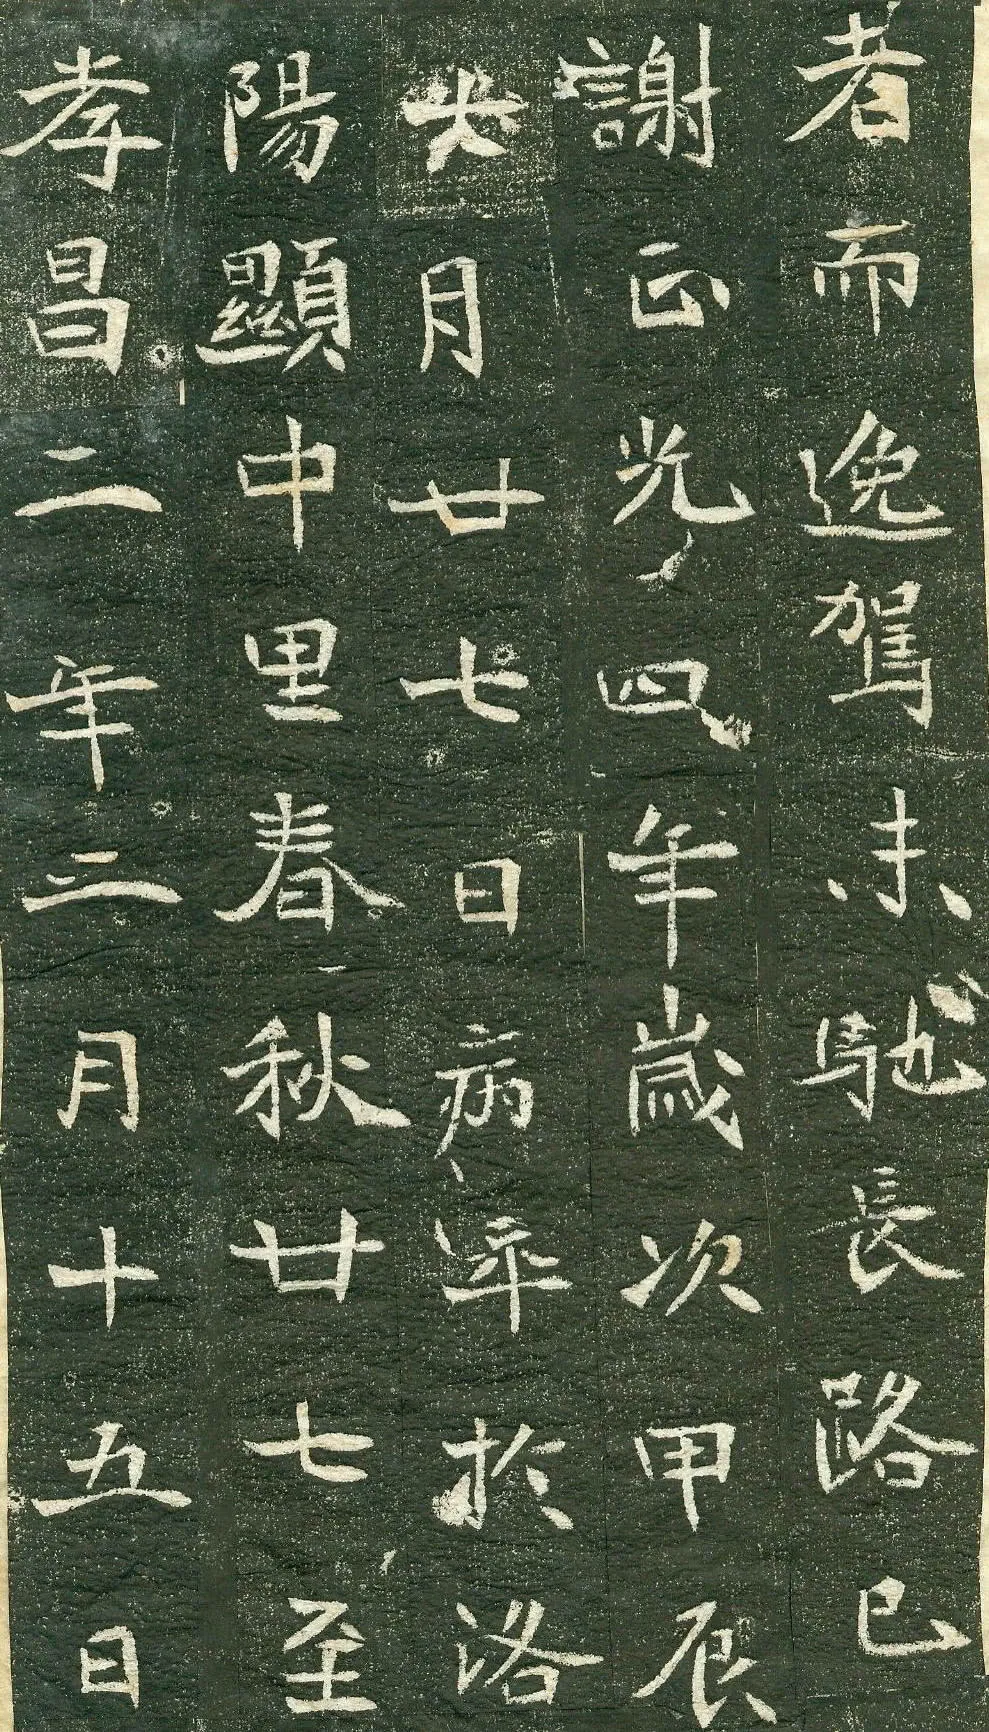 者而逸駕未馳長路已
謝正光四年歲次甲辰
六月廿七日病卒於洛
陽顯中里春秋廿七至
孝昌二年三月十五日